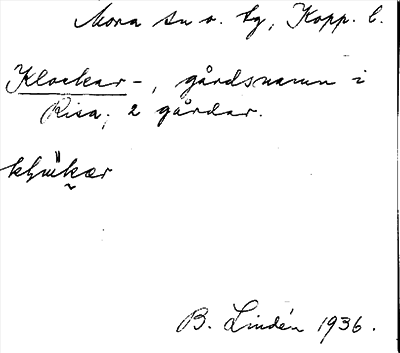 Mora sn o. tg, Kopp. l.
Klockar-, gårdsnamn i
Risa; 2 gårdar.
B. Lindén 1936.